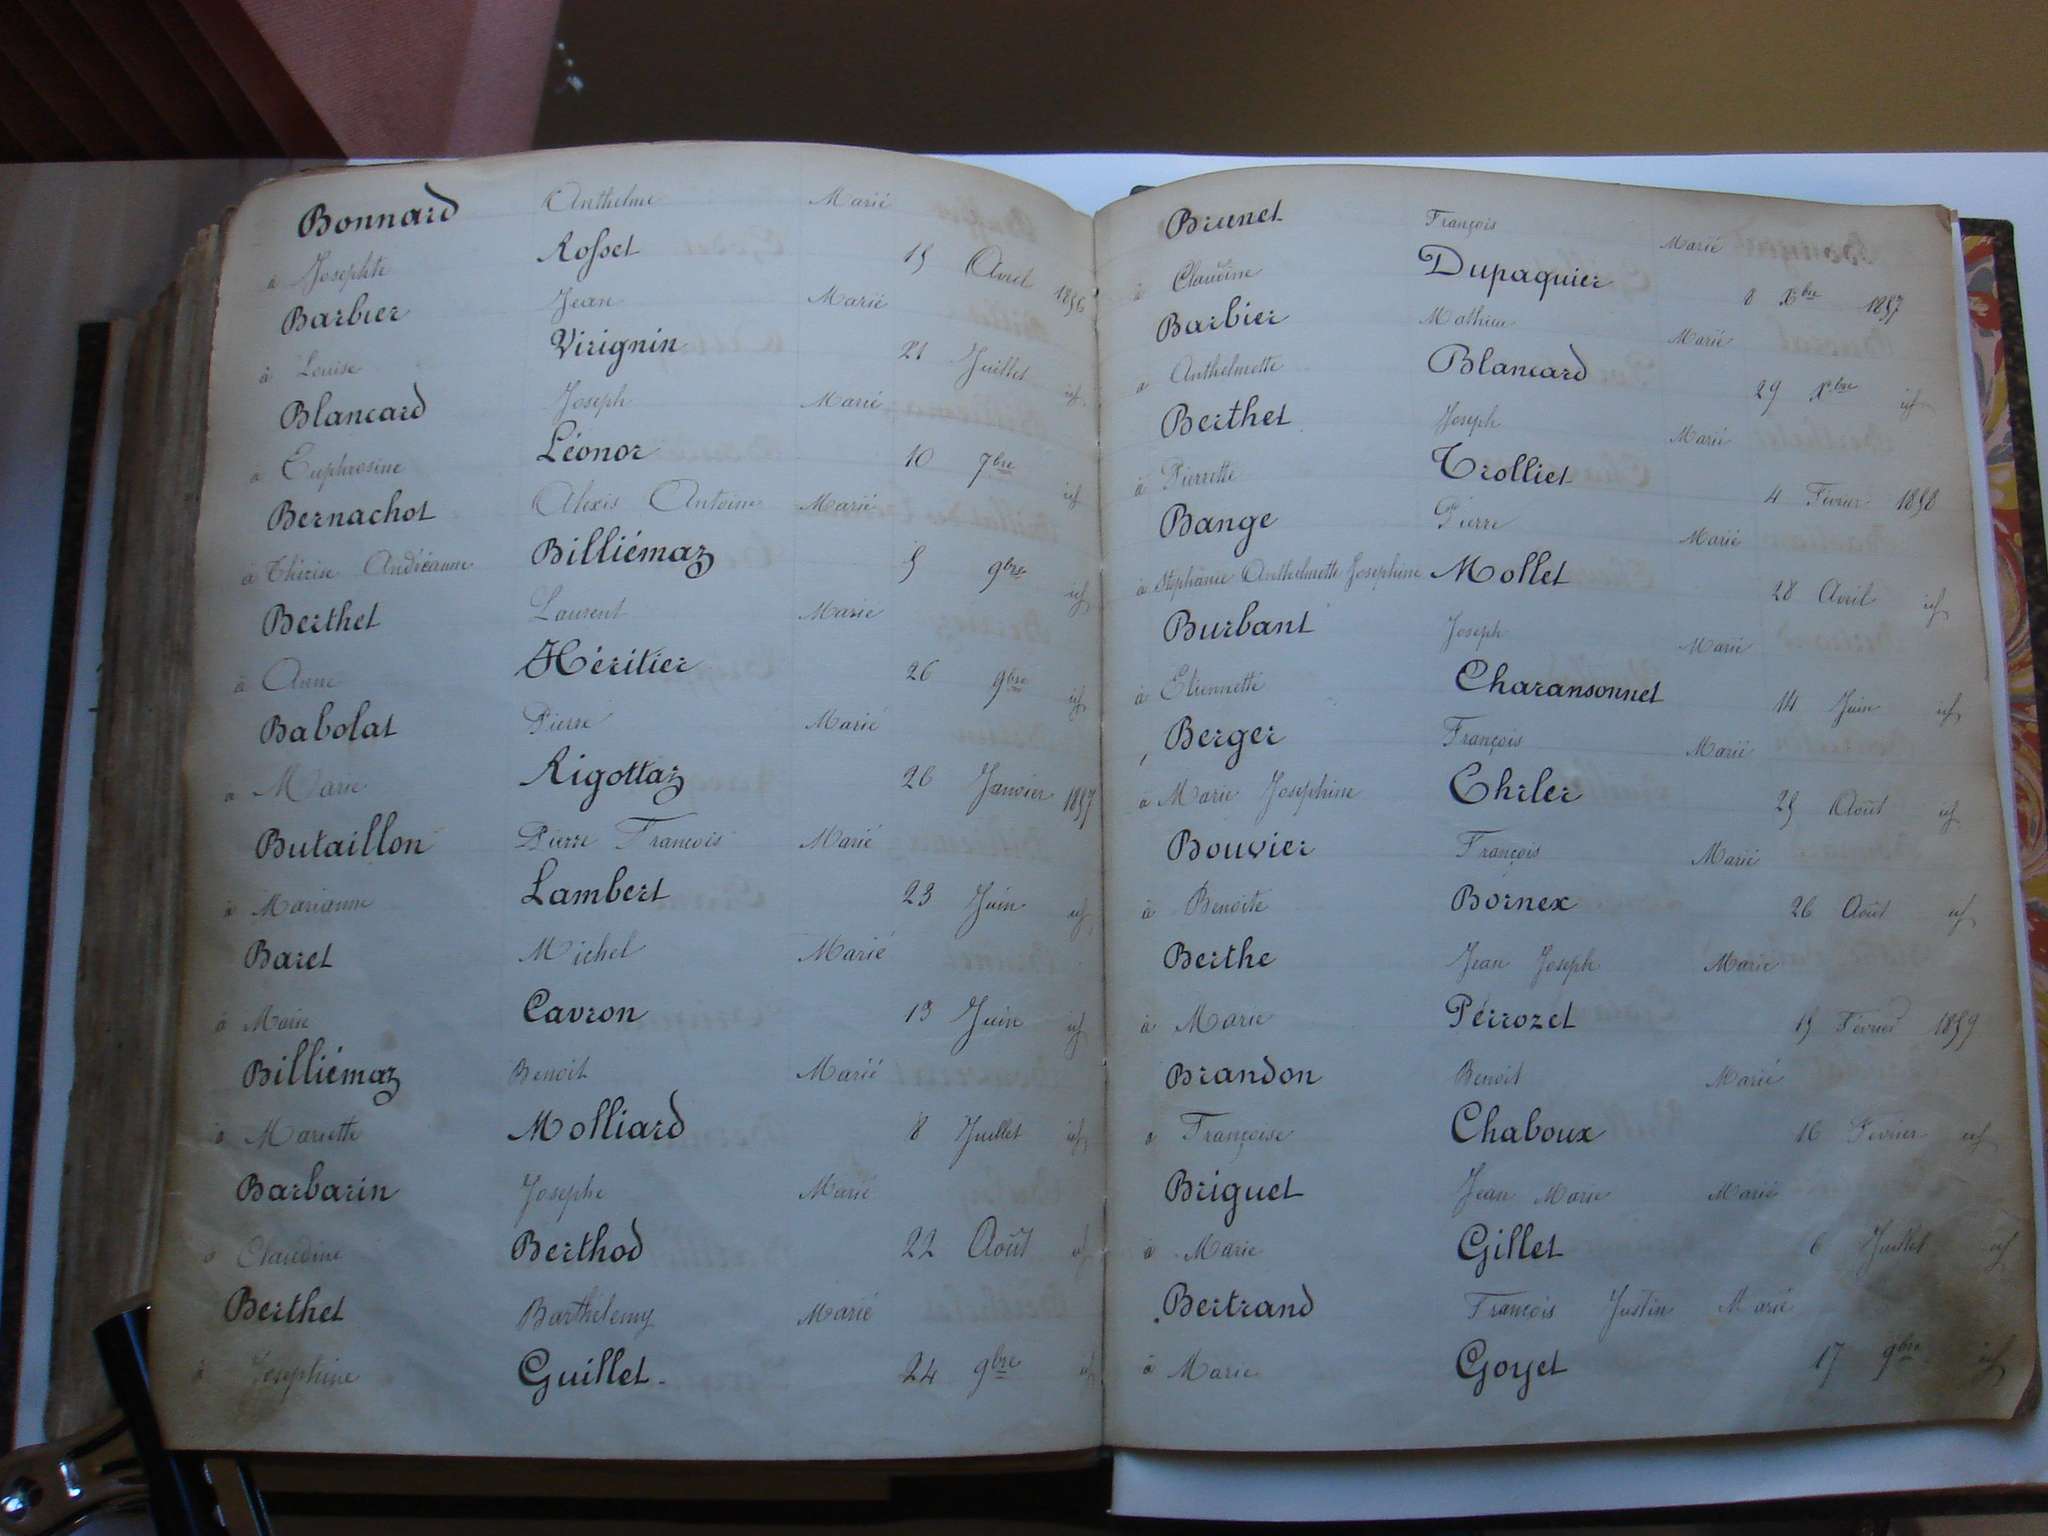 Bonnard Anthelme Marié
à Josephte Rosset 15 Avril 1856
Barbier Jean Marié
à Louise Virignin 21 Juillet id
Blancard Joseph Marié
à Euphrosine Léonor 10 7bre id
Bernachot Alexis Antoine Marié
à Thérèse Andréanne Billiémaz 5 9bre id
Berthet Laurent Marié
à Anne Héritier 26 9bre id
Babolat Pierre Marié
à Marie Rigottaz 26 Janvier 1857
Butaillon Pierre François Marié
à Marianne Lambert 23 Juin id
Baret Michel Marié
à Marie Cavron 13 Juin id
Billiémaz Benoit Marié
à Mariette Molliard 8 Juillet id
Barbarin Josephe Marié
à Claudine Berthod 22 Août id
Berthet Barthélemy Marié
à Josephine Guillet 24 9bre id
Brunet François Marié
à Claudine Dupaquier 8 Xbre 1857
Barbier Mathieu Marié
à Anthelmette Blancard 29 Xbre id
Berthet Joseph Marié
à Pierrette Trolliet 4 Février 1858
Bange Pierre Marié
à Stéphanie Anthelmette Josephine Mollet 28 Avril id
Burbant Joseph Marié
à Etiennette Charansonnet 14 Juin id
Berger François Marié
à Marie Josephine Ehrler 25 Août id
Bouvier François Marié
à Benoite Bornex 26 Août id
Berthe Jean Joseph Marié
à Marie Pérrozet 15 Février 1859
Brandon Benoit Marié
à Françoise Chaboux 16 Fevrier id
Briguet Jean Marie Marié
à Marie Gillet 6 Juillet id
Bertrand François Justin Marié
à Marie Goyet 17 9bre id